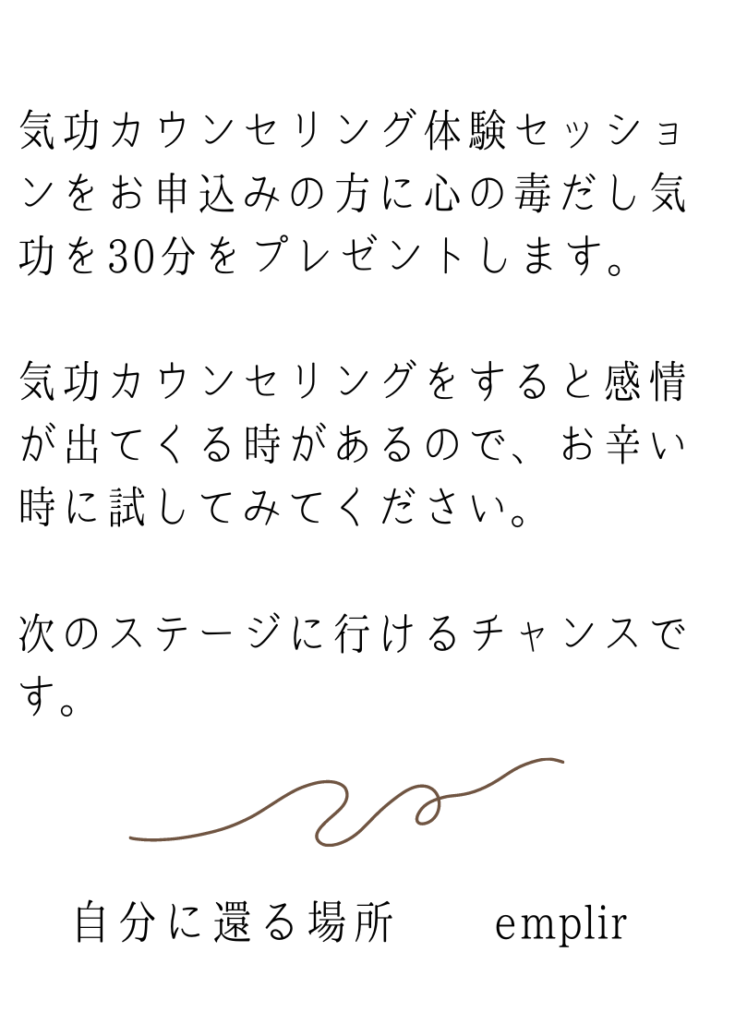 気功カウンセリング体験セッショ
ンをお申込みの方に心の毒だし気
功を30分をプレゼントします。
気功カウンセリングをすると感情
が出てくる時があるので、お辛い
時に試してみてください。
次のステージに行けるチャンスで
す。
自分に還る場所　　emplir